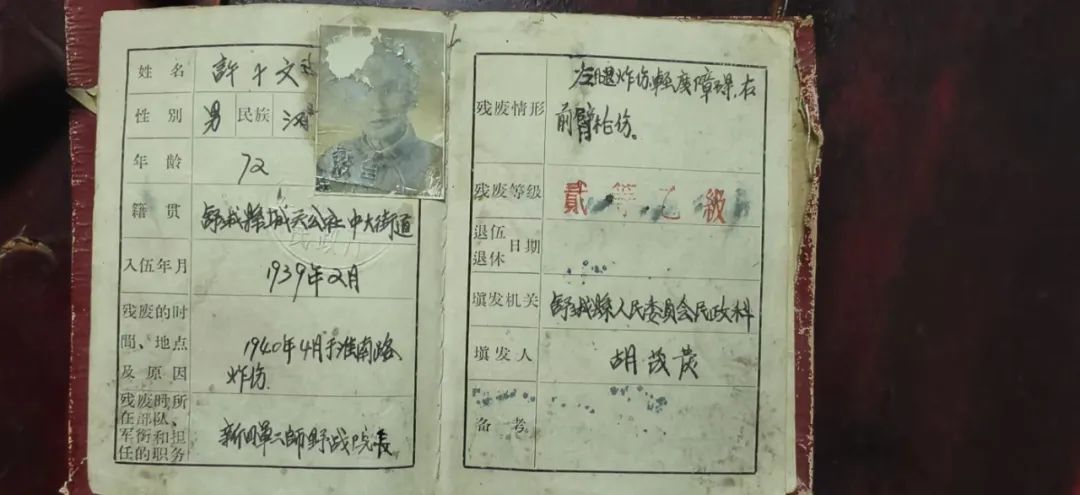 姓名 許斗文
性别 男 民族 汉
年龄 72
籍贯 舒城縣城关公社中大街道
入伍年月 1939年2月
残废的时間、地点及原因
1940年4月于淮南路
炸伤
残废时所
在部队、
军衔和担
任的职务
新四軍二師野战院長
残废情形
左腿炸伤輕度障碍,右
前臂枪伤。
残废等级 貳等乙級
退伍
退休
日期
填发机关 舒城縣人民委員会民政科
填发人 胡茂
备考